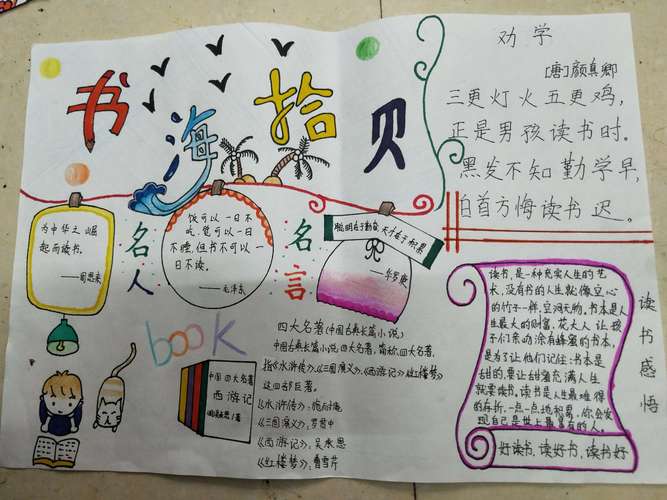 书海拾贝
劝学
[唐]颜真卿
三更灯火五更鸡,
正是男孩读书时。
黑发不知勤学早,
白首方悔读书迟。
为中华之崛
起而读书。
——周恩来
名人
饭可以一日不
吃,觉可以一日
不睡,但书不可以一
日不读。
——毛泽东
名言
聪明在于勤奋 天才在于积累
——华罗庚
book
中国四大名著
西游记
四大名著(中国古典长篇小说)
中国古典长篇小说四大名著,简称四大名著,
指《水浒传》、《三国演义》、《西游记》、《红楼梦》
这四部巨著。
《水浒传》:施耐庵
《三国演义》:罗贯中
《西游记》:吴承恩
《红楼梦》:曹雪芹
读书感悟
读书,是一种充实人生的艺
术,没有书的人生就像空心
的竹子一样,空洞无物。书本是人
生最大的财富,犹太人让孩
子们亲动涂有蜂蜜的书本,
是为了让他们记住:书本是
甜的,要让甜蜜充满人生
就要读书。读书是人生最难得
的存折,一点一点地积累,你会发
现自己是世上最富有的人。
好读书,读好书,读书好